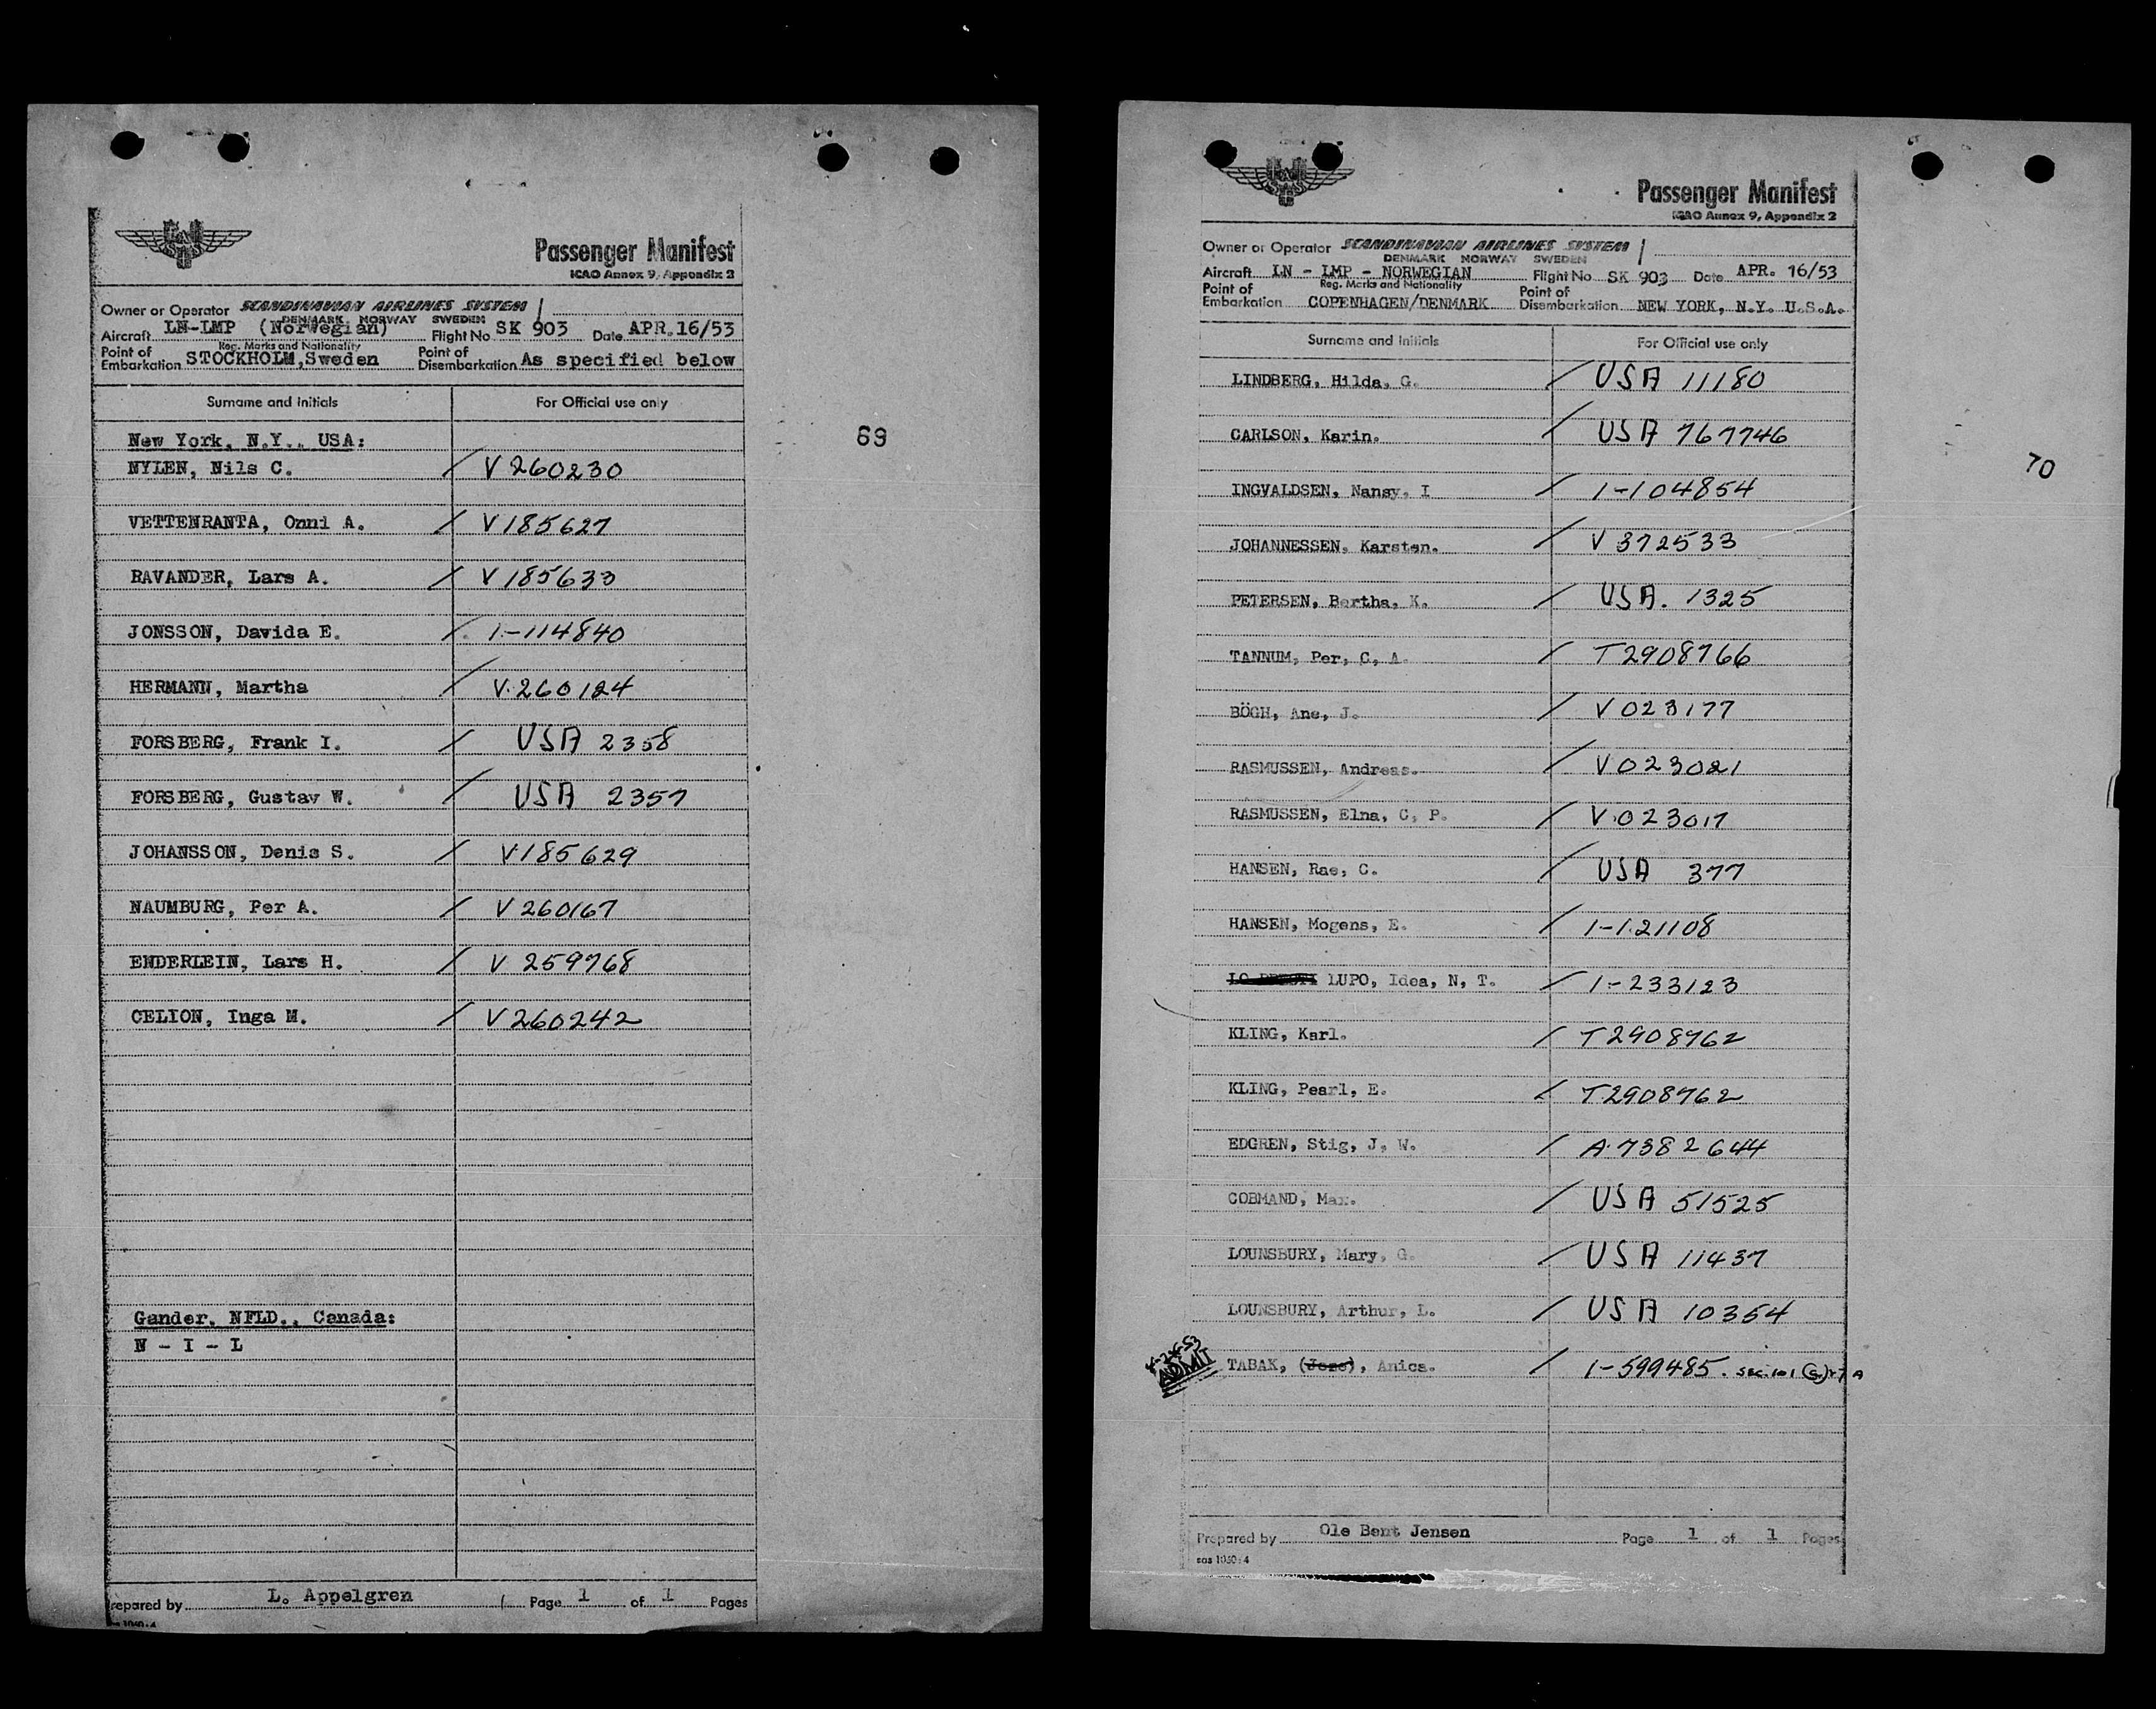 SAS
Passenger Manifest
ICAO Annex 9, Appendix 2
Owner or Operator SCANDINAVIAN AIRLINES SYSTEM
DENMARK NORWAY SWEDEN
Aircraft LN-LMP (Norwegian) Flight No SK 903 Date APR.16/53
Reg. Marks and Nationality
Point of Embarkation STOCKHOLM,Sweden Point of Disembarkation As specified below
Surname and Initials For Official use only
New York, N.Y., USA:
NYLEN, Nils C. / V 260230
VETTENRANTA, Onni A. / V 185627
RAVANDER, Lars A. / V 185633
JONSSON, Davida E. / 1-114840
HERMANN, Martha / V.260124
FORSBERG, Frank I. / USA 2358
FORSBERG, Gustav W. / USA 2357
JOHANSSON, Denis S. / V185629
NAUMBURG, Per A. / V 260167
ENDERLEIN, Lars H. / V 259768
CELION, Inga M. / V 260242
Gander, NFLD., Canada:
N - I - L
repared by L. Appelgren Page 1 of 1 Pages
69
SAS
Passenger Manifest
ICAO Annex 9, Appendix 2
Owner or Operator SCANDINAVIAN AIRLINES SYSTEM
DENMARK NORWAY SWEDEN
Aircraft LN - LMP - NORWEGIAN Flight No SK 903 Date APR. 16/53
Reg. Marks and Nationality
Point of Embarkation COPENHAGEN/DENMARK Point of Disembarkation NEW YORK, N.Y. U.S.A.
Surname and Initials For Official use only
LINDBERG, Hilda, G. / USA 11180
CARLSON, Karin. / USA 767746
INGVALDSEN, Nansy, I / 1-104854
JOHANNESSEN, Karsten. / V 372533
PETERSEN, Bertha, K. / USA. 1325
TANNUM, Per, C, A. / T2908766
BÖGH, Ane, J. / V 023177
RASMUSSEN, Andreas. / V023021
RASMUSSEN, Elna, C, P. / V.023017
HANSEN, Rae, C. / USA 377
HANSEN, Mogens, E. / 1-121108
LUPO, Idea, N, T. / 1-233123
KLING, Karl. / T2908762
KLING, Pearl, E. / T2908762
EDGREN, Stig, J, W. / A.7382644
COBMAND, Max. / USA 51525
LOUNSBURY, Mary, G. / USA 11437
LOUNSBURY, Arthur, L. / USA 10354
ADMIT
TABAK, (Joze), Anica. / 1-599485. sec. 101
Prepared by Ole Bent Jensen Page 1 of 1 Pages
sas 1030:4
70